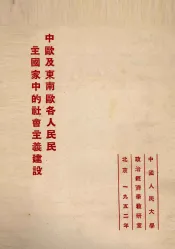 中歐及東南歐各人民民
主國家中的社會主義建設
中國人民大學
政治經濟學教研室
北京 一九五二年